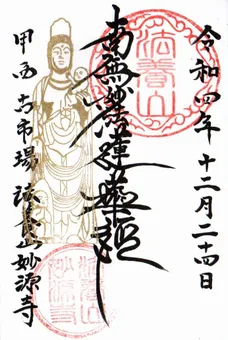 令和四年十二月二十四日
法善山
南無妙法蓮華経
甲西古市場 法善山妙源寺
法善山
妙源寺